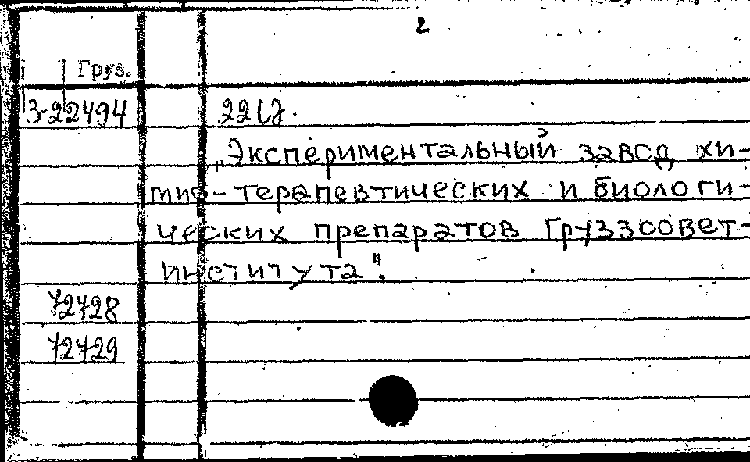 2
Груз.
3-22494
22 [2].
„Экспериментальный завод хи-
мио-терапевтических и биологи-
ческих препаратов Груззсовет-
института".
72728
72729